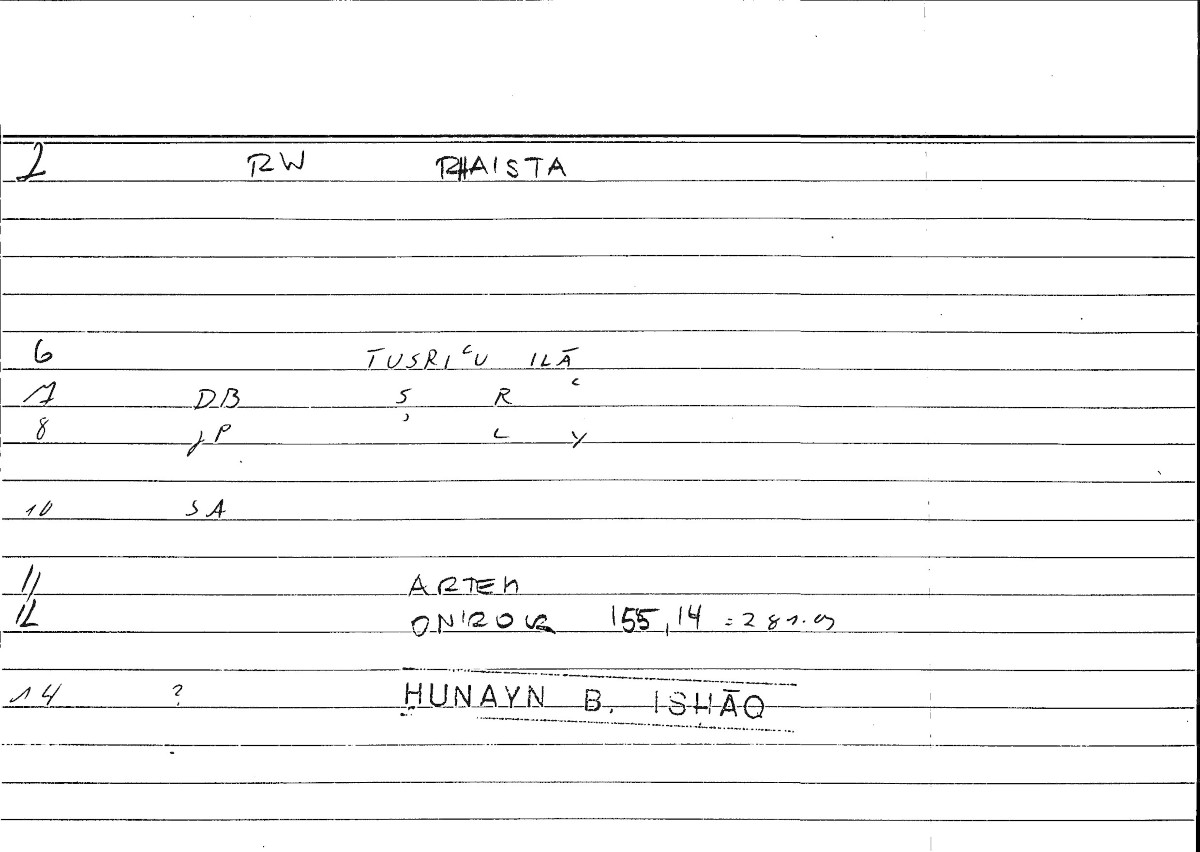 2 RW RHAISTA
6 TUSRIʿU ILĀ
7 DB S R ʿ
8 jP ʾ L Y
10 SA
11 ARTEM
12 ONIROCR 155,14 = 281.09
14 ? ḤUNAYN B. ISḤĀQ